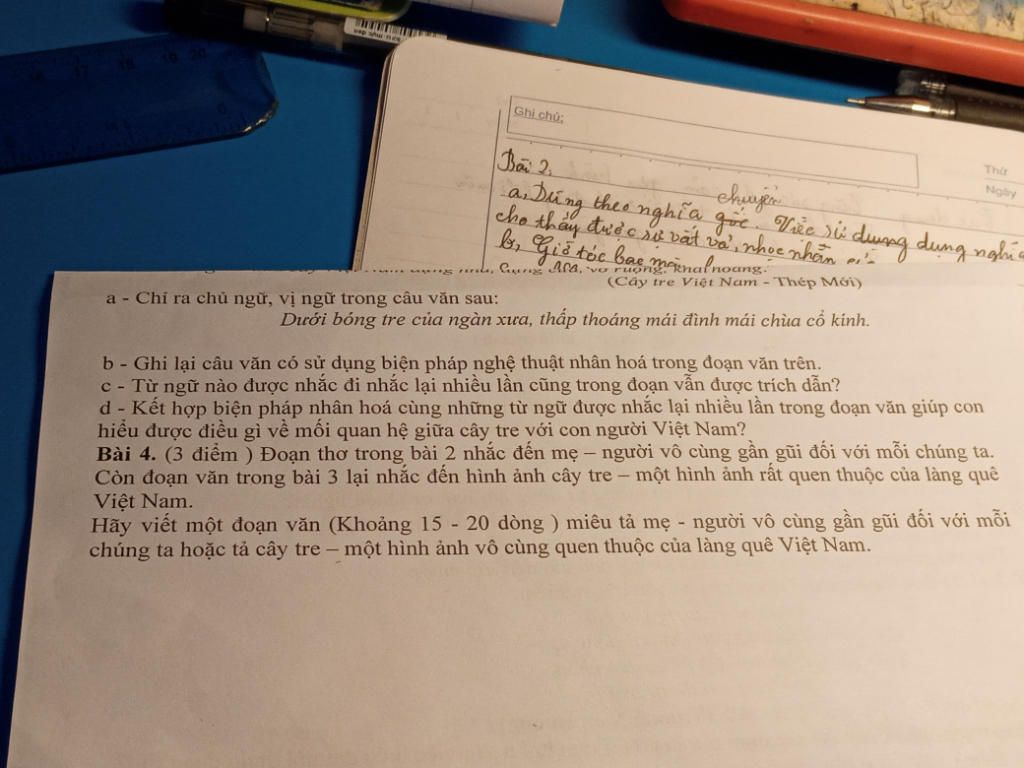 16 17 18 19 20
Ghi chú:
Thứ
Ngày
Bài 2.
chuyển
a, Dùng theo nghĩa gốc. Việc sử dụng dụng nghĩa
cho thấy được sự vất vả, nhọc nhằn
b, Giờ tóc bạc
vỡ ruộng, khai hoang.
(Cây tre Việt Nam - Thép Mới)
a - Chỉ ra chủ ngữ, vị ngữ trong câu văn sau:
Dưới bóng tre của ngàn xưa, thấp thoáng mái đình mái chùa cổ kính.
b - Ghi lại câu văn có sử dụng biện pháp nghệ thuật nhân hoá trong đoạn văn trên.
c - Từ ngữ nào được nhắc đi nhắc lại nhiều lần cũng trong đoạn vẫn được trích dẫn?
d - Kết hợp biện pháp nhân hoá cùng những từ ngữ được nhắc lại nhiều lần trong đoạn văn giúp con
hiểu được điều gì về mối quan hệ giữa cây tre với con người Việt Nam?
Bài 4. (3 điểm ) Đoạn thơ trong bài 2 nhắc đến mẹ – người vô cùng gần gũi đối với mỗi chúng ta.
Còn đoạn văn trong bài 3 lại nhắc đến hình ảnh cây tre – một hình ảnh rất quen thuộc của làng quê
Việt Nam.
Hãy viết một đoạn văn (Khoảng 15 - 20 dòng ) miêu tả mẹ - người vô cùng gần gũi đối với mỗi
chúng ta hoặc tả cây tre – một hình ảnh vô cùng quen thuộc của làng quê Việt Nam.